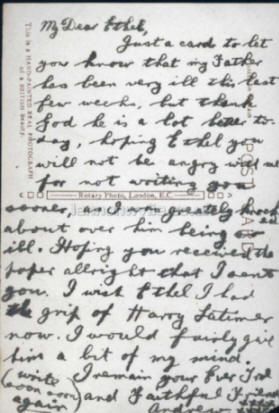 My Dear Ethel,
Just a card to let
you know that my Father
has been very ill this last
few weeks, but thank
God he is a lot better to-
day, hoping Ethel you
will not be angry with me
for not writing you
Rotary Photo, London, E.C.
sooner, as I am greately knock
about over him being so
ill. Hoping you received the
paper allright that I sent
you. I wish Ethel I had
the grip of Harry Latimer
now. I would fairly give
him a bit of my mind.
I remain your Ever True
and Faithful Friend
(write
soon soon
again)
This is a HAND-PAINTED REAL PHOTOGRAPH
of a British Beauty.